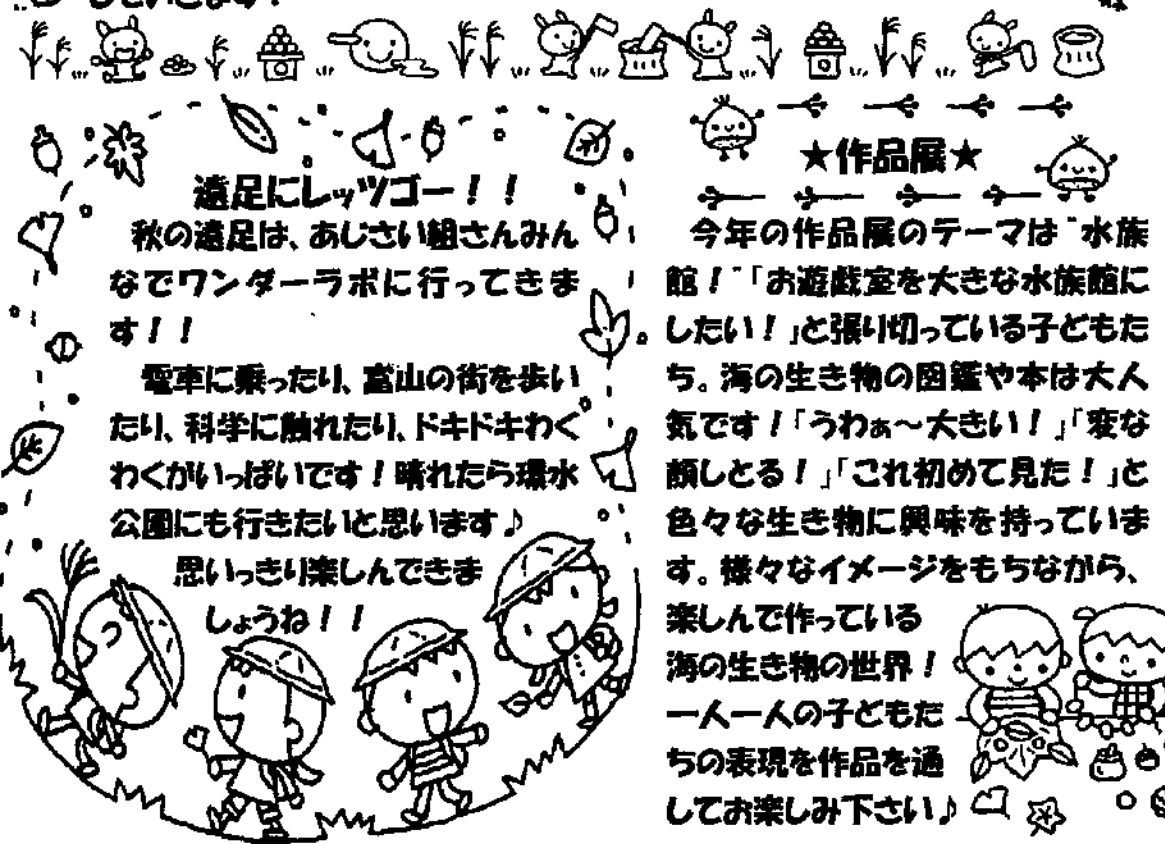 遠足にレッツゴー！！
秋の遠足は、あじさい組さんみん
なでワンダーラボに行ってきま
す！！
電車に乗ったり、富山の街を歩い
たり、科学に触れたり、ドキドキわく
わくがいっぱいです！晴れたら環水
公園にも行きたいと思います♪
思いっきり楽しんできま
しょうね！！
★作品展★
今年の作品展のテーマは“水族
館！”「お遊戯室を大きな水族館に
したい！」と張り切っている子どもた
ち。海の生き物の図鑑や本は大人
気です！「うわぁ～大きい！」「変な
顔しとる！」「これ初めて見た！」と
色々な生き物に興味を持っていま
す。様々なイメージをもちながら、
楽しんで作っている
海の生き物の世界！
一人一人の子どもた
ちの表現を作品を通
してお楽しみ下さい♪